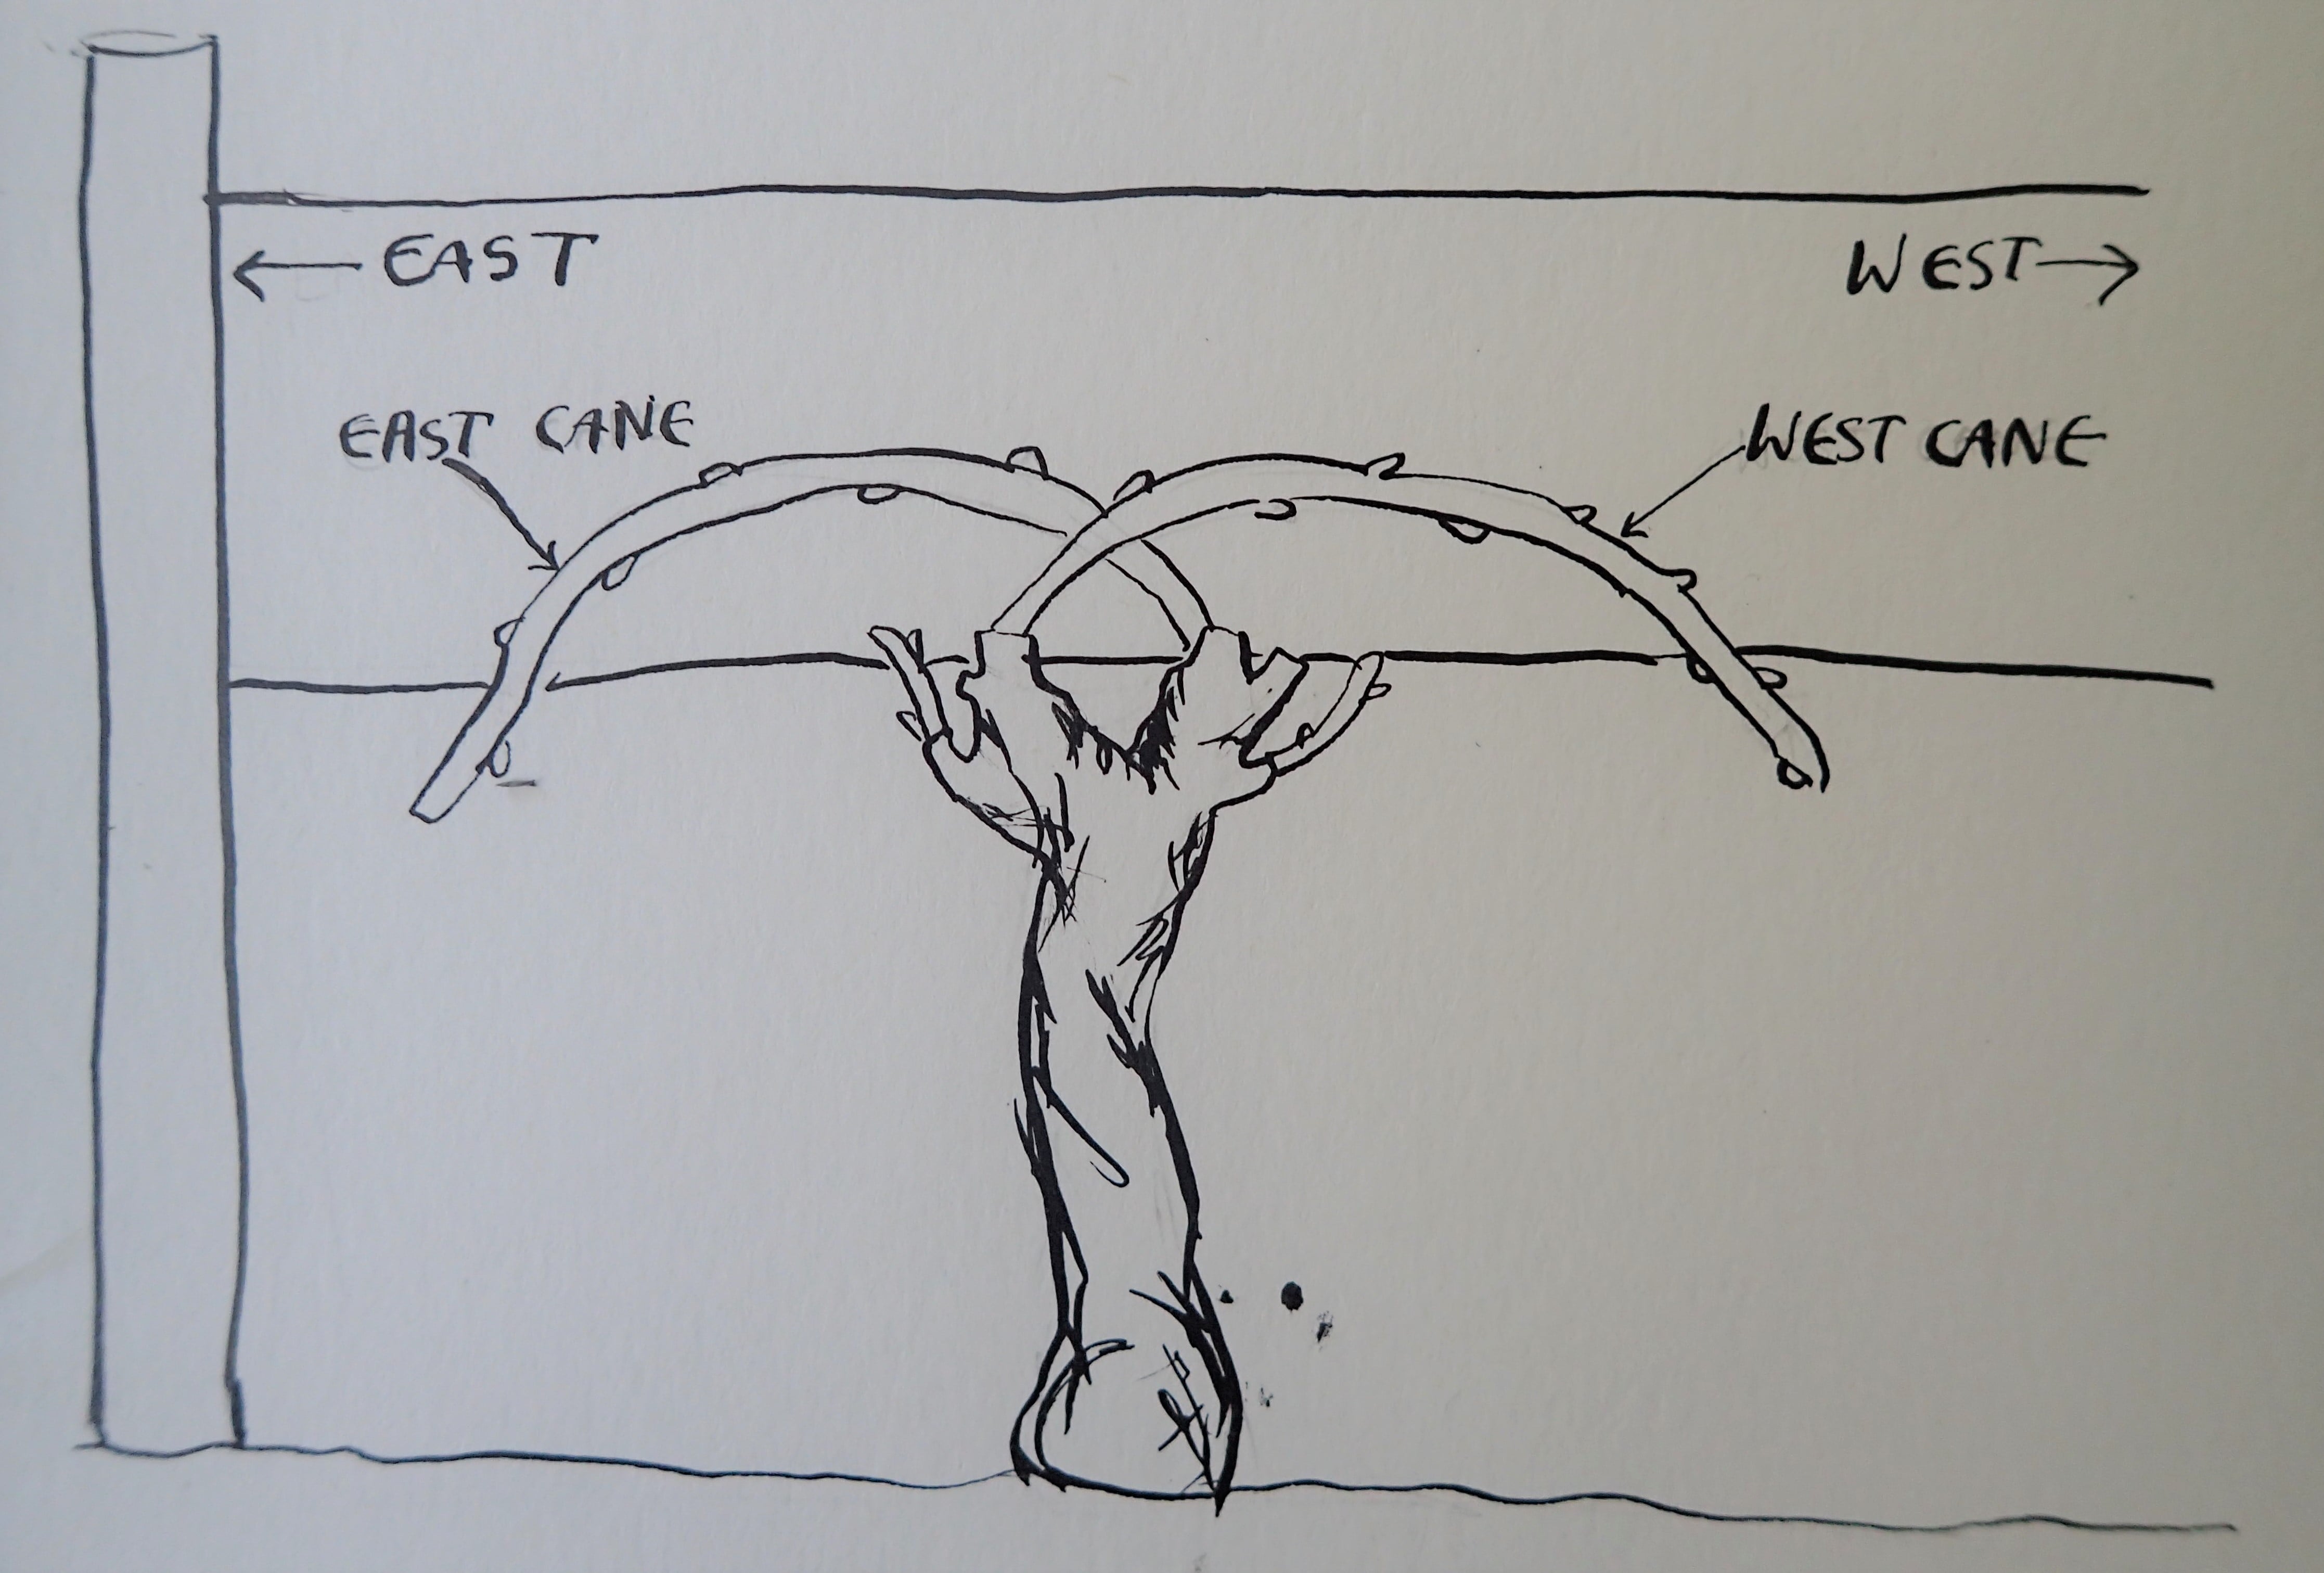 ← EAST
WEST →
EAST CANE
WEST CANE